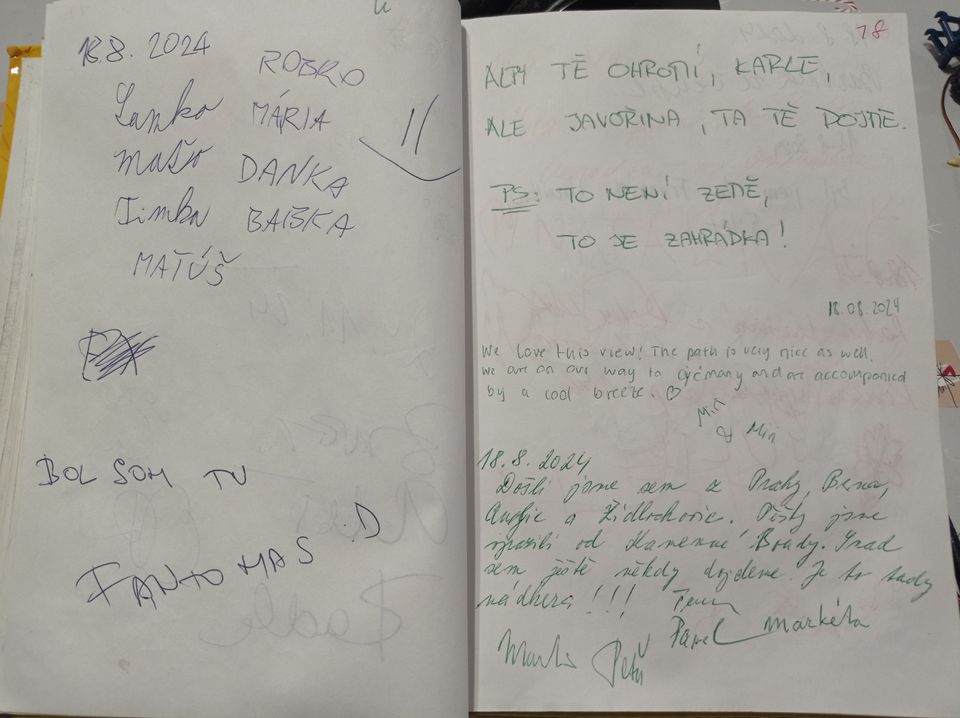 18.8.2024
ROBKO
Janko MÁRIA
Mašo DANKA
Timka BABKA
MATÚŠ
BOL SOM TU
FANTOMAS :D
18
ALPY TĚ OHROMÍ, KARLE,
ALE JAVOŘINA, TA TĚ DOJME.
PS: TO NENÍ ZEDĚ,
TO JE ZAHRÁDKA!
18.08.2024
We love this view! The path is very nice as well.
We are on our way to Čičmany and are accompanied
by a cool breeze. ♡
Miri
& Miri
18.8.2024
Došli jsme sem z Prahy, Brna,
Anglie a Židlochovic. Pěšky jsme
vyrazili od Kamenné Boudy. Snad
sem ještě někdy dojdeme. Je to tady
nádhera!!!
Pavel Markéta
Petr